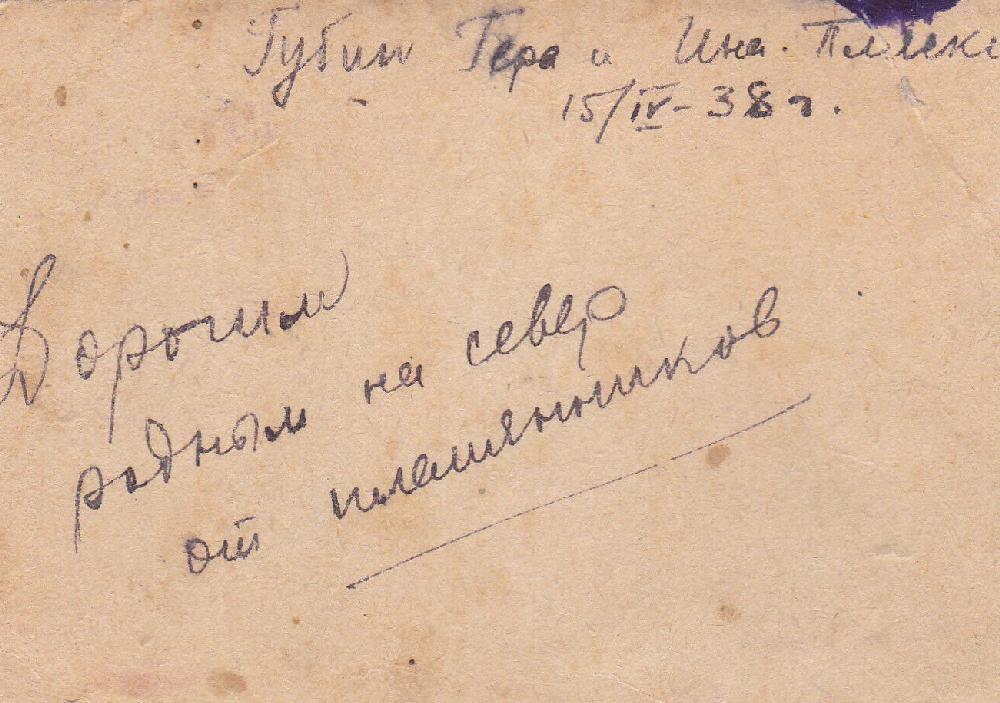 Губин Гера и Ина.
15/IV-38 г.
Дорогим
родным на север
от племянников